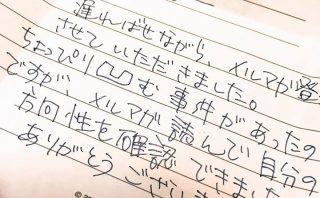 遅ればせながら、メルマガ登
させていただきました。
ちょっぴり凹む事件があったの
ですが、メルマガ読んで自分の
方向性を確認できました
ありがとうござい